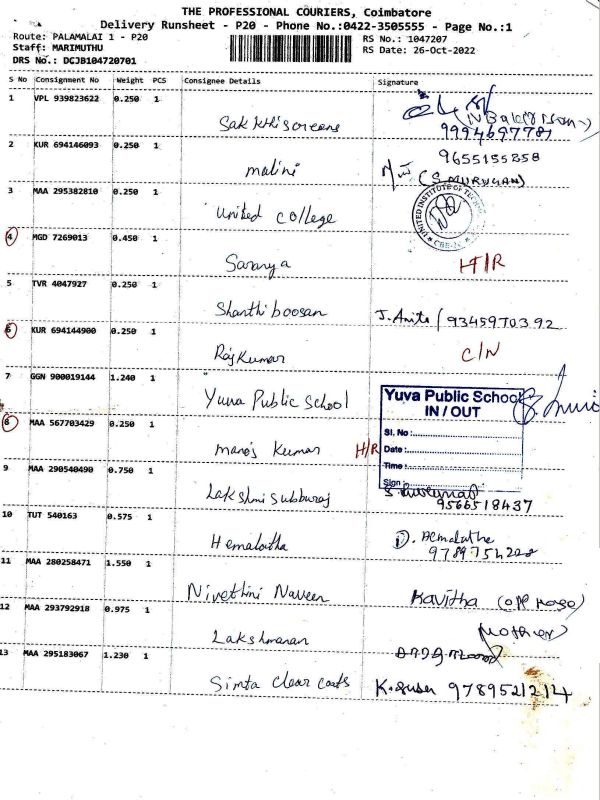 THE PROFESSIONAL COURIERS, Coimbatore
Delivery Runsheet - P20 - Phone No.:0422-3505555 - Page No.:1
Route: PALAMALAI 1 - P20
Staff: MARIMUTHU
DRS No.: DCJB104720701
RS No.: 1047207
RS Date: 26-Oct-2022
S No Consignment No Weight PCS Consignee Details Signature
1 VPL 939823622 0.250 1
Sakthi screens
9994697781
2 KUR 694146093 0.250 1
9655155858
malini (S.MURUGAN)
3 MAA 295382810 0.250 1
united college
UNITED INSTITUTE OF
4 MGD 7269013 0.450 1
Saranya H/R
5 TVR 4047927 0.250 1
Shanthi boosan J. Anita / 9345970392
6 KUR 694144900 0.250 1
Rajkumar C/N
7 GGN 900019144 1.240 1
Yuva Public School
Yuva Public School
IN / OUT
Sl. No :
Date :
Time :
Sign :
8 MAA 567703429 0.250 1
manoj kumar H/R
9 MAA 290540490 0.750 1
Lakshmi subburaj
9566518437
10 TUT 540163 0.575 1
Hemalatha D. Hemalatha
11 MAA 280258471 1.550 1
Nivethini Naveen Kavitha (opp house)
12 MAA 293792918 0.975 1
(Mother)
Lakshmanan
13 MAA 295183067 1.230 1
Simta clear coats K. Suba 9789521214